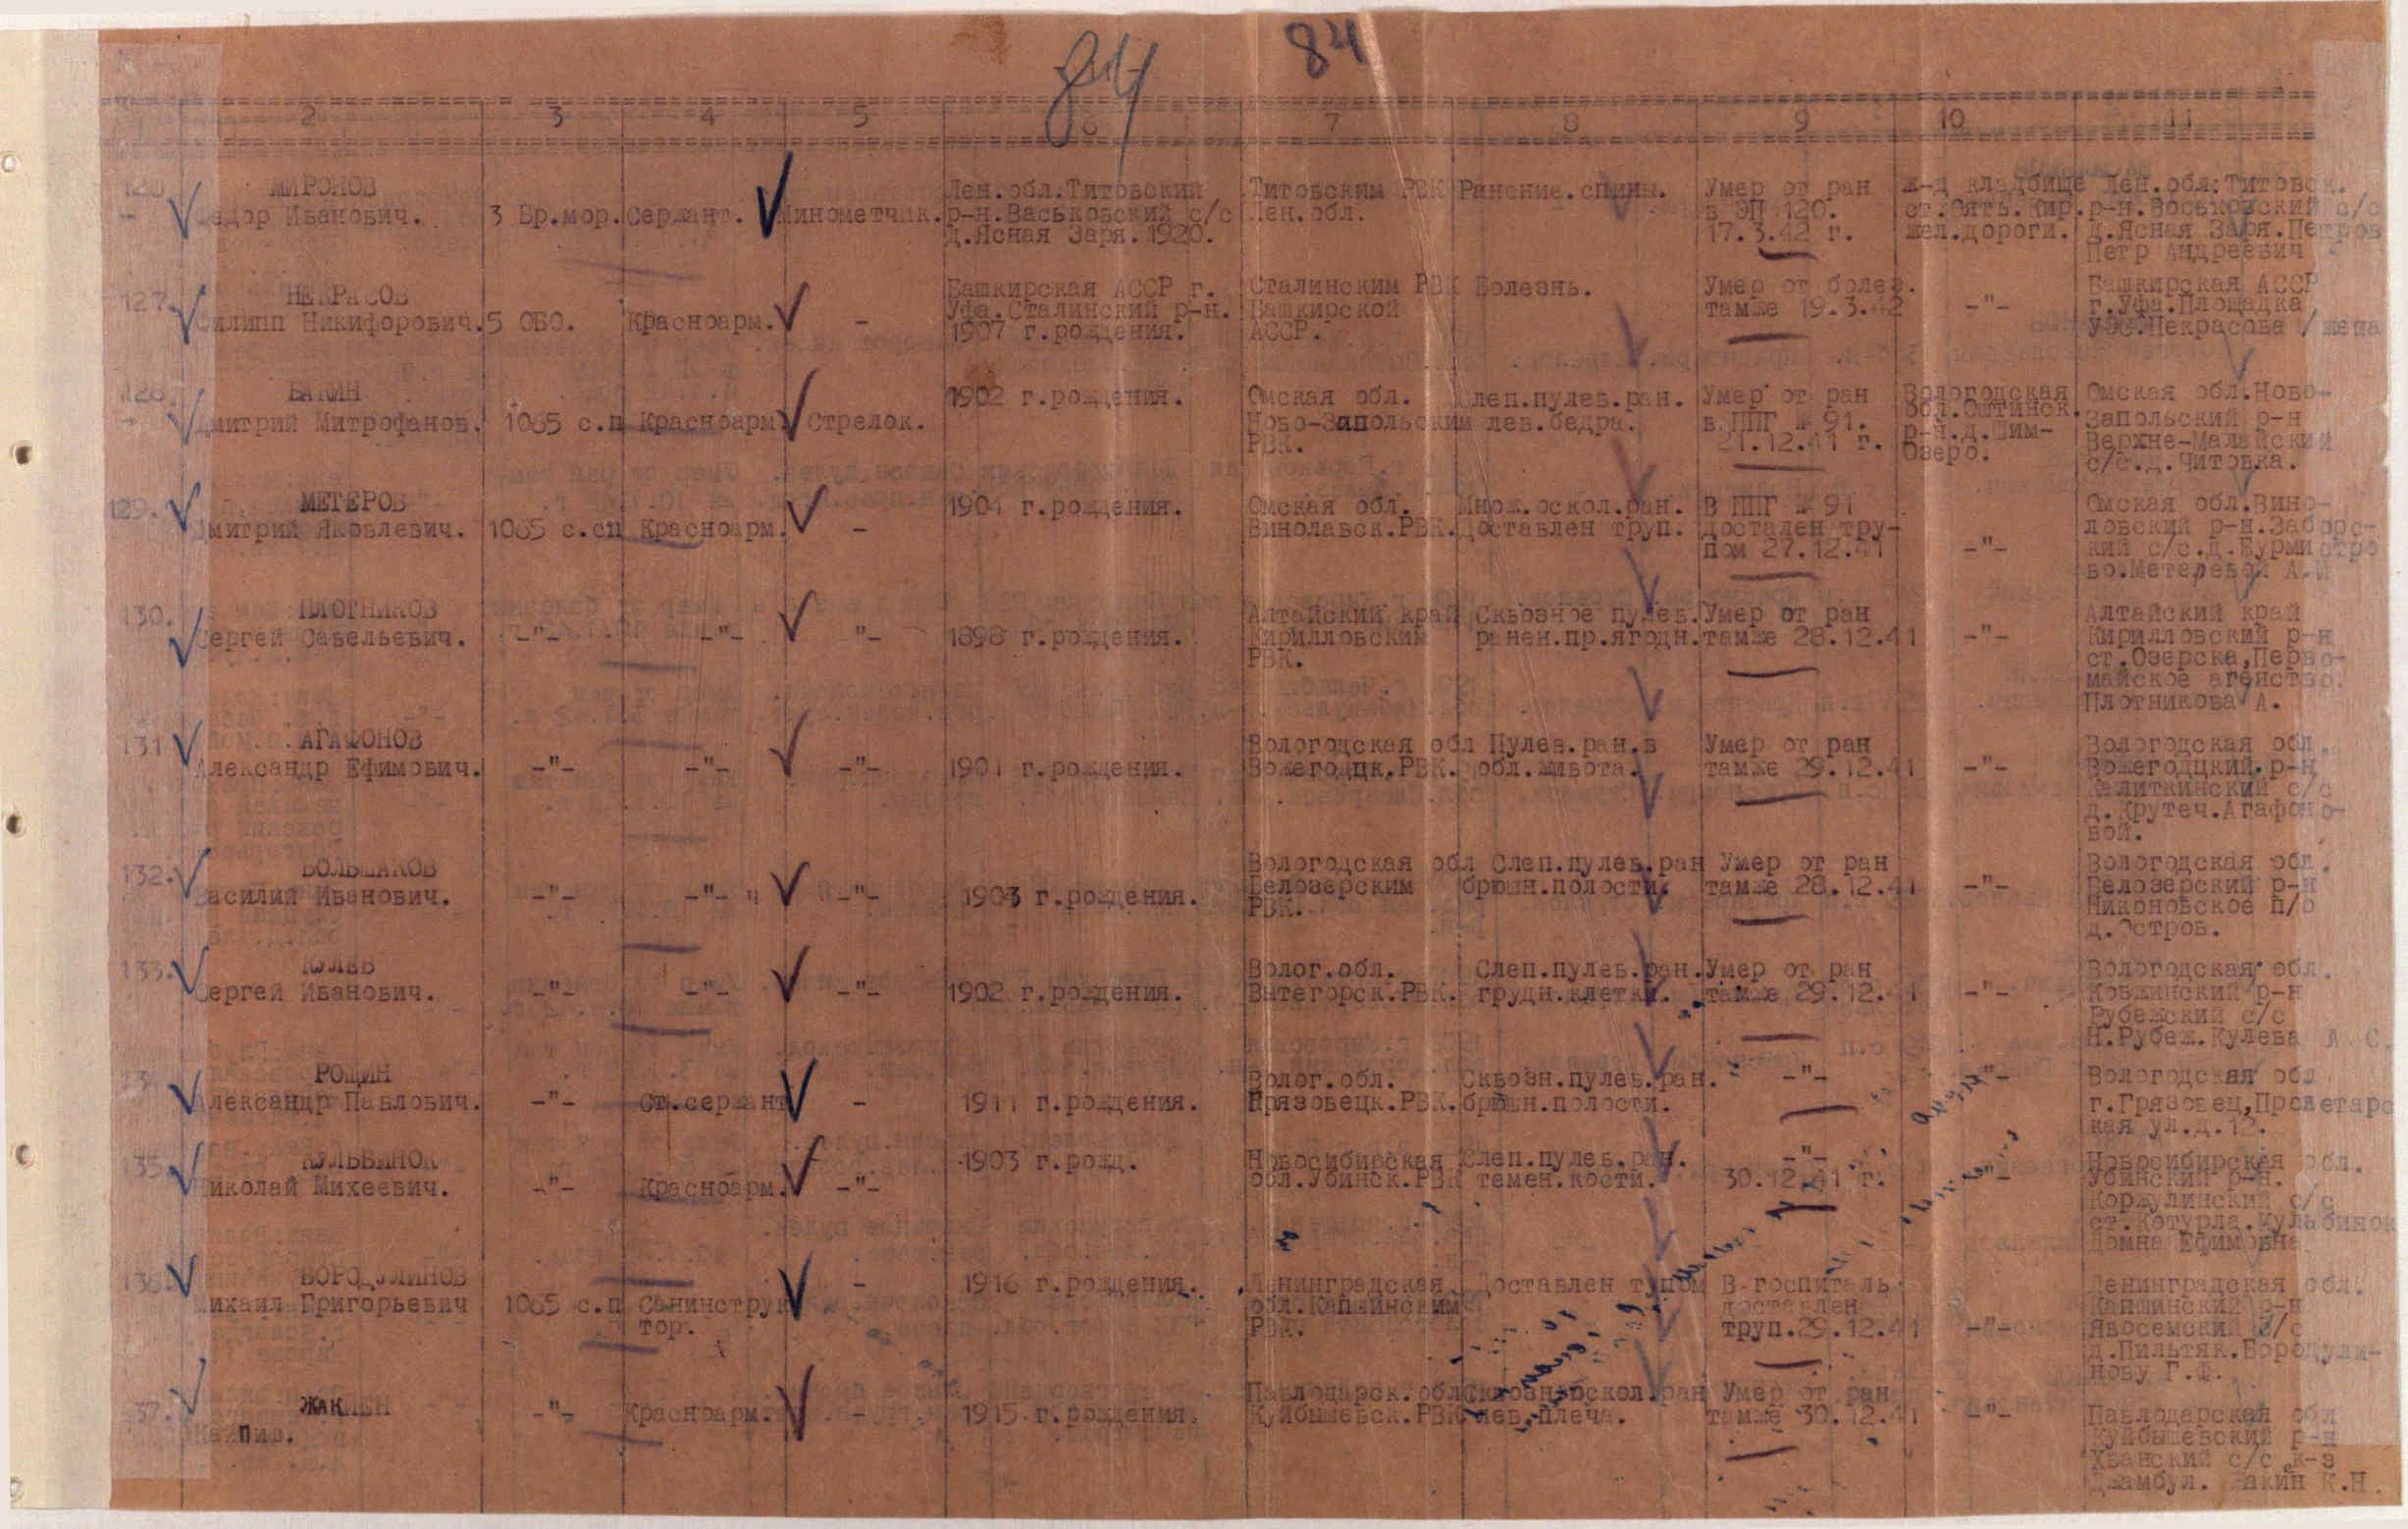 84
84
2 3 4 5 6 7 8 9 10 11
МИРОНОВ
Федор Иванович. 3 Бр.мор. Сержант. Минометчик.
Лен.обл.Титовский
р-н.Васьковский с/с
д.Ясная Заря. 1920.
Титовским РВК
Лен.обл.
Ранение.спины.
Умер от ран
в ЭП 120.
17.3.42 г.
ж-д кладбище
ст.Оять.Кир.
жел.дороги.
Лен.обл.Титовск.
р-н.Воськовский с/с
д.Ясная Заря.Петров
Петр Андреевич
127.
НЕКРАСОВ
Филипп Никифорович. 5 ОБО. Красноарм. -
Башкирская АССР г.
Уфа.Сталинский р-н.
1907 г.рождения.
Сталинским РВК
Башкирской
АССР.
Болезнь.
Умер от болез.
тамже 19.3.42
-"-
Башкирская АССР
г.Уфа.Площадка
Некрасова /жена
128.
БАКИН
Дмитрий Митрофанов. 1065 с.п Красноарм. Стрелок.
1902 г.рождения.
Омская обл.
Ново-Запольским
РВК.
Слеп.пулев.ран.
лев.бедра.
Умер от ран
в ППГ № 91.
21.12.41 г.
Вологодская
обл.Оштинск.
р-н.д.Шим-
Озеро.
Омская обл.Ново-
Запольский р-н
Верхне-Малайский
с/с.д.Читовка.
129.
МЕТЕРОВ
Дмитрий Яковлевич. 1065 с.сп Красноарм. -
1904 г.рождения.
Омская обл.
Винолавск.РВК.
Множ.оскол.ран.
Доставлен труп.
В ППГ № 91
достален тру-
пом 27.12.41
-"-
Омская обл.Вино-
ловский р-н.Заборс-
кий с/с.д.Бурмистро
во.Метелевой А.И
130.
ПЛОТНИКОВ
Сергей Савельевич. -"- -"- "-
1898 г.рождения.
Алтайский край
Кирилловским
РВК.
Сквозное пулев.
ранен.пр.ягодн.
Умер от ран
тамже 28.12.41
-"-
Алтайский край
Кирилловский р-н
ст.Озерска,Перво-
майское агенство.
Плотникова А.
131
АГАФОНОВ
Александр Ефимович. -"- -"- -"-
1901 г.рождения.
Вологодская обл
Вожегодцк.РВК.
Пулев.ран.в
обл.живота.
Умер от ран
тамже 29.12.41
-"-
Вологодская обл.
Вожегодцкий р-н
Калиткинский с/с
д.Крутеч.Агафоно-
вой.
132.
БОЛЬШАКОВ
Василий Иванович. -"- -"- -"-
1903 г.рождения.
Вологодская обл
Белозерским
РВК.
Слеп.пулев.ран
брюшн.полости.
Умер от ран
тамже 28.12.41
-"-
Вологодская обл.
Белозерский р-н
Никоновское п/о
д.Остров.
133.
КУЛЕВ
Сергей Иванович. -"- -"- -"-
1902 г.рождения.
Волог.обл.
Вытегорск.РВК.
Слеп.пулев.ран.
грудн.клетки.
Умер от ран
тамже 29.12.41
-"-
Вологодская обл.
Ковжинский р-н
Рубежский с/с
Н.Рубеж.Кулева А.С.
РОЩИН
Александр Павлович. -"- Ст.сержант -
1911 г.рождения.
Волог.обл.
Грязовецк.РВК.
Сквозн.пулев.ран.
брюшн.полости.
-"-
-"-
Вологодская обл.
г.Грязовец,Пролетарс
кая ул.д.12.
135.
КУЛЬБИНОК
Николай Михеевич. -"- Красноарм. -"-
1903 г.рожд.
Новосибирская
обл.Убинск.РВК
Слеп.пулев.ран.
темен.кости.
-"-
30.12.41 г.
-"-
Новосибирская обл.
Убинский р-н.
Коржулинский с/с
ст.Котурла.Кульбинок
Домна Ефимовна
136.
БОРОДУЛИНОВ
Михаил Григорьевич 1065 с.п Санинструк
тор. -
1916 г.рождения.
Ленинградская
обл.Капшинским
РВК.
Доставлен тупом
В госпиталь
доставлен
труп.29.12.41
-"-
Ленинградская обл.
Капшинский р-н
Явосемский с/с
д.Пильтяк.Бородули-
нову Г.Ф.
137.
ЖАКЛЕН
-"- Красноарм. -
1915 г.рождения.
Павлодарск.обл
Куйбышевск.РВК
Сквозн.оскол.ран
лев.плеча.
Умер от ран
тамже 30.12.41
-"-
Павлодарская обл
Куйбышевский р-н
с/с к-з
Джамбул. К.Н.